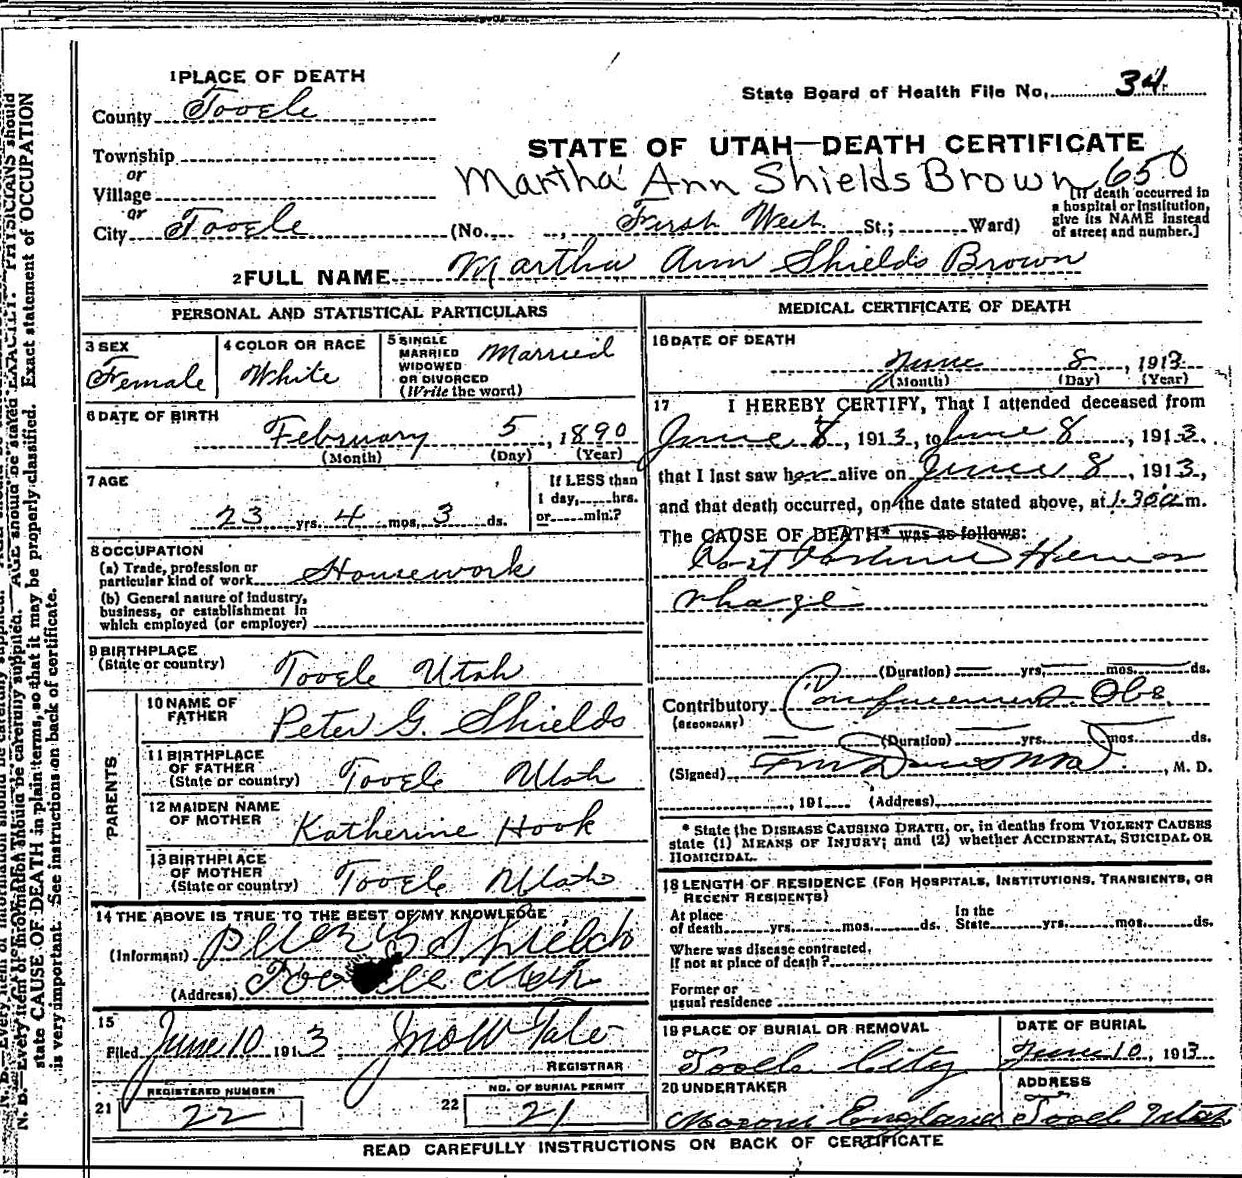 1 PLACE OF DEATH
County Tooele
State Board of Health File No. 34
Township
or
Village
or
City Tooele
STATE OF UTAH—DEATH CERTIFICATE
Martha Ann Shields Brown 650
(No. , First West St.; Ward)
[If death occurred in
a hospital or institution,
give its NAME instead
of street and number.]
2 FULL NAME Martha Ann Shields Brown
PERSONAL AND STATISTICAL PARTICULARS
3 SEX
Female
4 COLOR OR RACE
White
5 SINGLE
MARRIED
WIDOWED
OR DIVORCED
(Write the word)
Married
6 DATE OF BIRTH
February 5, 1890
(Month) (Day) (Year)
7 AGE
23 yrs. 4 mos. 3 ds.
If LESS than
1 day, hrs.
or min.?
8 OCCUPATION
(a) Trade, profession or
particular kind of work Housework
(b) General nature of industry,
business, or establishment in
which employed (or employer)
9 BIRTHPLACE
(State or country) Tooele Utah
PARENTS
10 NAME OF
FATHER Peter G. Shields
11 BIRTHPLACE
OF FATHER
(State or country) Tooele Utah
12 MAIDEN NAME
OF MOTHER Katherine Hook
13 BIRTHPLACE
OF MOTHER
(State or country) Tooele Utah
14 THE ABOVE IS TRUE TO THE BEST OF MY KNOWLEDGE
(Informant)
(Address) Tooele Utah
15
Filed June 10 1913 Jno W Tate
REGISTRAR
21 REGISTERED NUMBER
22
22 NO. OF BURIAL PERMIT
21
MEDICAL CERTIFICATE OF DEATH
16 DATE OF DEATH
June 8, 1913
(Month) (Day) (Year)
17 I HEREBY CERTIFY, That I attended deceased from
June 8, 1913, to June 8, 1913.
that I last saw her alive on June 8, 1913,
and that death occurred, on the date stated above, at 1.30 a m.
The CAUSE OF DEATH* was as follows:
Post Partum Hemor
rhage
(Duration) yrs. mos. ds.
Contributory Confinement Obs
(SECONDARY)
(Duration) yrs. mos. ds.
(Signed) F M Davis MD, M. D.
, 191 (Address)
* State the DISEASE CAUSING DEATH, or, in deaths from VIOLENT CAUSES
state (1) MEANS OF INJURY; and (2) whether ACCIDENTAL, SUICIDAL OR
HOMICIDAL.
18 LENGTH OF RESIDENCE (FOR HOSPITALS, INSTITUTIONS, TRANSIENTS, OR
RECENT RESIDENTS)
At place
of death yrs. mos. ds.
In the
State yrs. mos. ds.
Where was disease contracted,
If not at place of death?
Former or
usual residence
19 PLACE OF BURIAL OR REMOVAL
Tooele City
DATE OF BURIAL
June 10, 1913
20 UNDERTAKER
Moroni England
ADDRESS
Tooele Utah
READ CAREFULLY INSTRUCTIONS ON BACK OF CERTIFICATE
N. B.—Every item of information should be carefully supplied. AGE should be stated EXACTLY. PHYSICIANS should
state CAUSE OF DEATH in plain terms, so that it may be properly classified. Exact statement of OCCUPATION
is very important. See instructions on back of certificate.